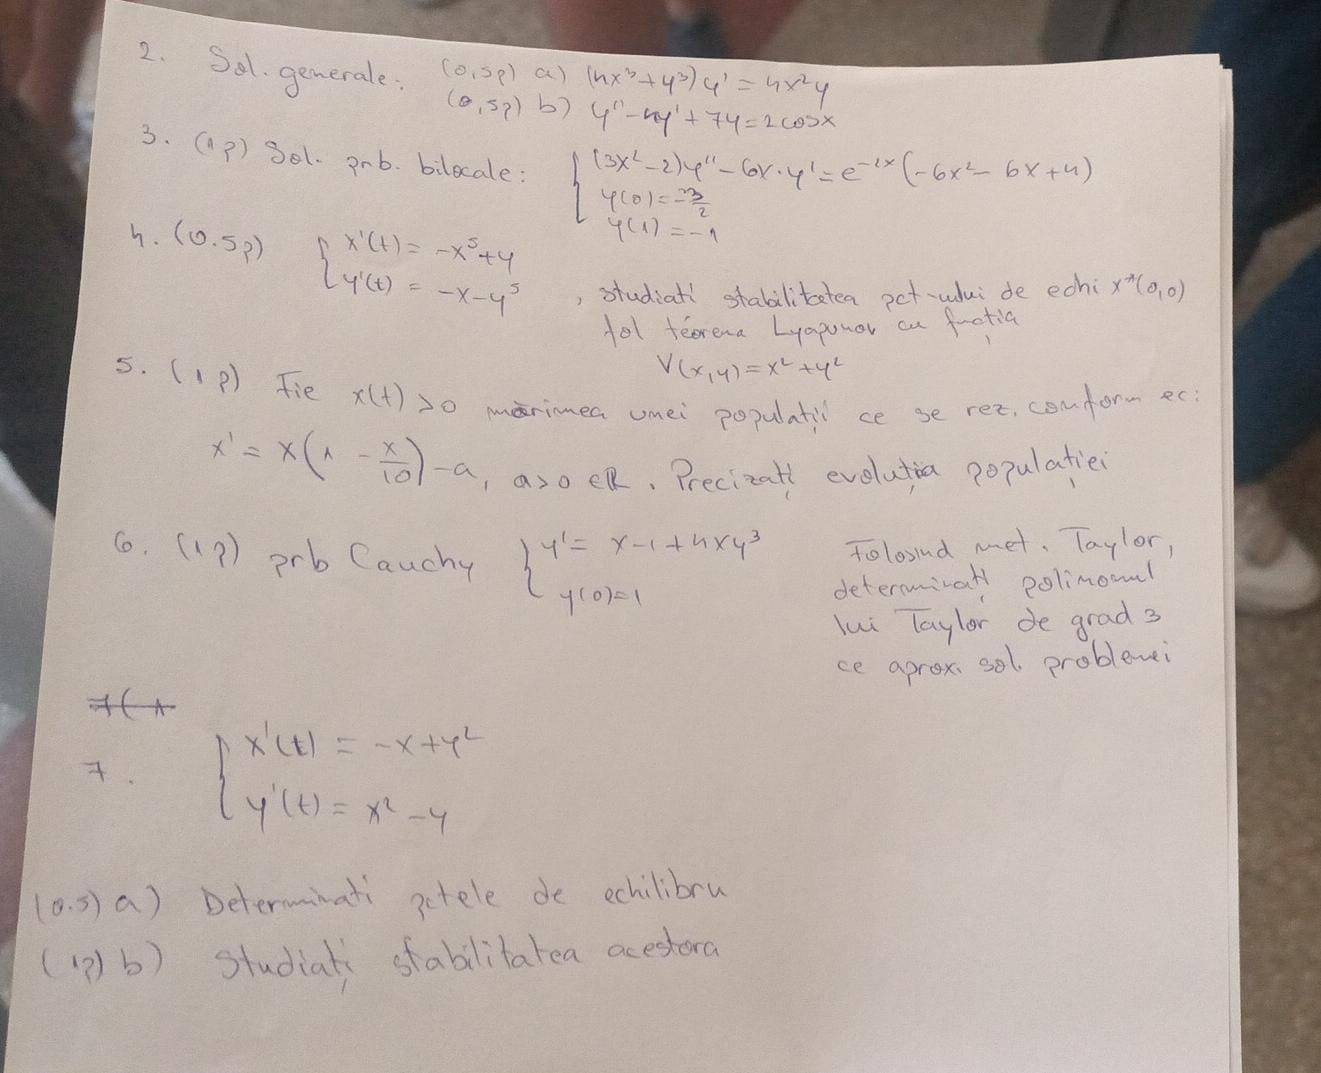 2. Sol. generale: (0,5p) a) (4x³+y³)y' = 4x²y
(0,5p) b) y''-4y'+7y=2cosx
3. (1p) Sol. prb. bilocale: { (3x²-2)y''-6x·y'=e^{-2x}(-6x²-6x+4)
y(0)=-3/2
y(1)=-1
4. (0.5p) { x'(t)= -x⁵+y
y'(t) = -x-y⁵ , studiati stabilitatea pct-ului de echi x*(0,0)
fol teorema Lyapunov cu funcția
V(x,y)=x²+y²
5. (1p) Fie x(t)>0 mărimea unei populații ce se rez. conform ec:
x'= x(1 - x/10)-a, a>0 ∈ℝ. Precizați evoluția populației
6. (1p) prb Cauchy { y'= x-1+4xy³
y(0)=1
Folosind met. Taylor,
determinați polinomul
lui Taylor de grad 3
ce aprox. sol. problemei
7.
{ x'(t) = -x+y²
y'(t) = x²-y
(0.5) a) Determinati pctele de echilibru
(1p) b) Studiați stabilitatea acestora